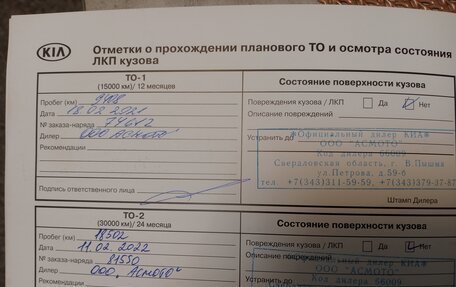 KIA
Отметки о прохождении планового ТО и осмотра состояния
ЛКП кузова
ТО-1
(15000 км)/ 12 месяцев
Состояние поверхности кузова
Пробег (км) 9408
Дата 18.02.2021
№ заказа-наряда 74612
Дилер ООО АСМОТО
Рекомендации
Подпись ответственного лица
Повреждения кузова / ЛКП Да Нет
Описание повреждений
Устранить до
«Официальный дилер КИА»
ООО "АСМОТО"
Код дилера 66009
Свердловская область, г. В.Пышма
ул.Петрова, д.59-б
тел. +7(343)311-59-59, +7(343)379-37-87
Штамп Дилера
ТО-2
(30000 км)/ 24 месяца
Состояние поверхности кузова
Пробег (км) 18502
Дата 11.02.2022
№ заказа-наряда 81550
Дилер ООО „АСМОТО"
Рекомендации
Повреждения кузова / ЛКП Да Нет
Описание повреждений
Устранить до
«Официальный дилер КИА»
ООО "АСМОТО"
Код дилера 66009